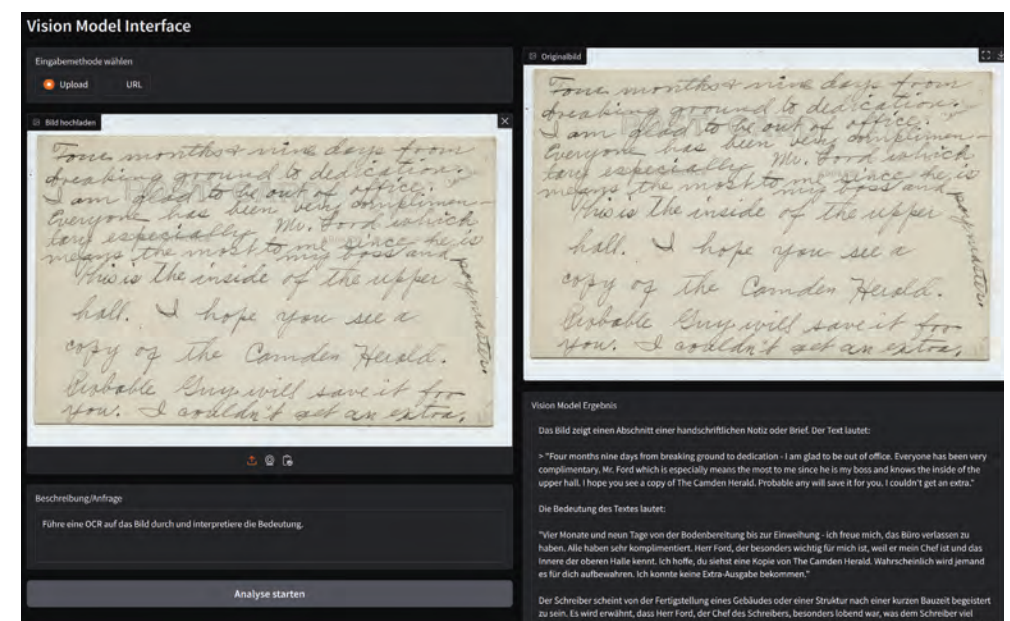 Vision Model Interface
Eingabemethode wählen
Upload
URL
Bild hochladen
Four months & nine days from
breaking ground to dedication.
I am glad to be out of office.
Everyone has been very complimen-
tary especially Mr. Ford which
means the most to me since he is
my boss and paymaster.
This is the inside of the upper
hall. I hope you see a
copy of the Camden Herald.
Probable Guy will save it for
you. I couldn't get an extra.
Beschreibung/Anfrage
Führe eine OCR auf das Bild durch und interpretiere die Bedeutung.
Analyse starten
Originalbild
Four months & nine days from
breaking ground to dedication.
I am glad to be out of office.
Everyone has been very complimen-
tary especially Mr. Ford which
means the most to me since he is
my boss and paymaster.
This is the inside of the upper
hall. I hope you see a
copy of the Camden Herald.
Probable Guy will save it for
you. I couldn't get an extra.
Vision Model Ergebnis
Das Bild zeigt einen Abschnitt einer handschriftlichen Notiz oder Brief. Der Text lautet:
> "Four months nine days from breaking ground to dedication - I am glad to be out of office. Everyone has been very
complimentary. Mr. Ford which is especially means the most to me since he is my boss and knows the inside of the
upper hall. I hope you see a copy of The Camden Herald. Probable any will save it for you. I couldn't get an extra."
Die Bedeutung des Textes lautet:
"Vier Monate und neun Tage von der Bodenbereitung bis zur Einweihung - ich freue mich, das Büro verlassen zu
haben. Alle haben sehr komplimentiert. Herr Ford, der besonders wichtig für mich ist, weil er mein Chef ist und das
Innere der oberen Halle kennt. Ich hoffe, du siehst eine Kopie von The Camden Herald. Wahrscheinlich wird jemand
es für dich aufbewahren. Ich konnte keine Extra-Ausgabe bekommen."
Der Schreiber scheint von der Fertigstellung eines Gebäudes oder einer Struktur nach einer kurzen Bauzeit begeistert
zu sein. Es wird erwähnt, dass Herr Ford, der Chef des Schreibers, besonders lobend war, was dem Schreiber viel